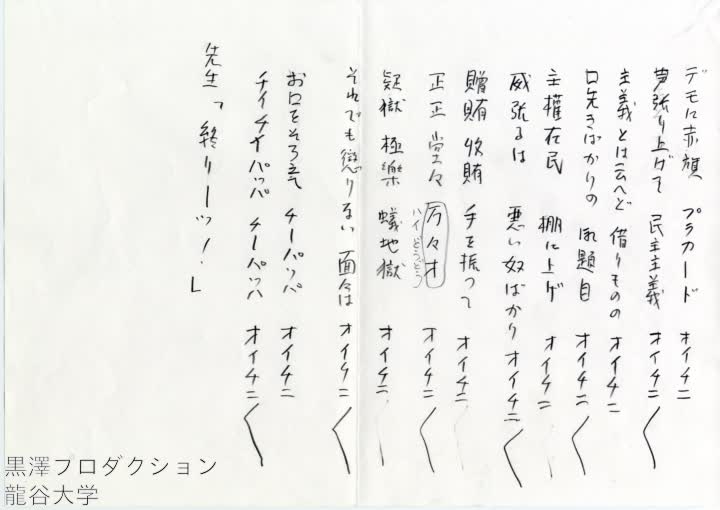 デモに赤旗 プラカード オイチニ
声張り上げて 民主主義 オイチニ〱
主義とは云へど 借りものの オイチニ
口先きばかりの お題目 オイチニ〱
主權在民 棚に上げ オイチニ
威張るは 悪い奴ばかり オイチニ〱
贈賄 收賄 手を振って オイチニ
正正堂々 万々才 オイチニ〱
ハイどうどう
疑獄 極樂 蟻地獄 オイチニ
それでも懲りない 面々は オイチニ〱
お口をそろえて チーパッパ オイチニ
チイチイパッパ チーパッパ オイチニ〱
先生「終りーッ！」
黒澤プロダクション
龍谷大学